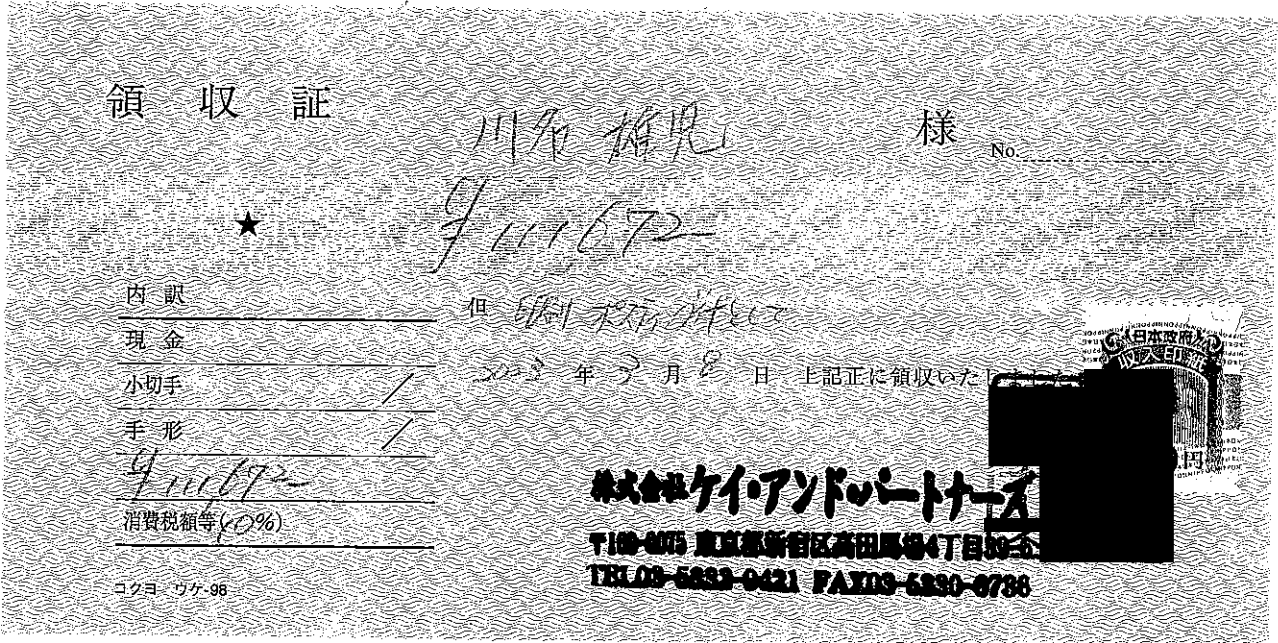 領収証
川名 雄児 様
No.
★
¥111,672
内訳
現金
小切手 /
手形 /
¥111,672
消費税額等(10%)
コクヨ ウケ-98
但 印刷 ポスティング代として
2023年3月8日 上記正に領収いたしました
日本政府
収入印紙
円
株式会社ケイ・アンド・パートナーズ
〒169-0075 東京都新宿区高田馬場4丁目
TEL03-5332-0421 FAX03-5330-6786